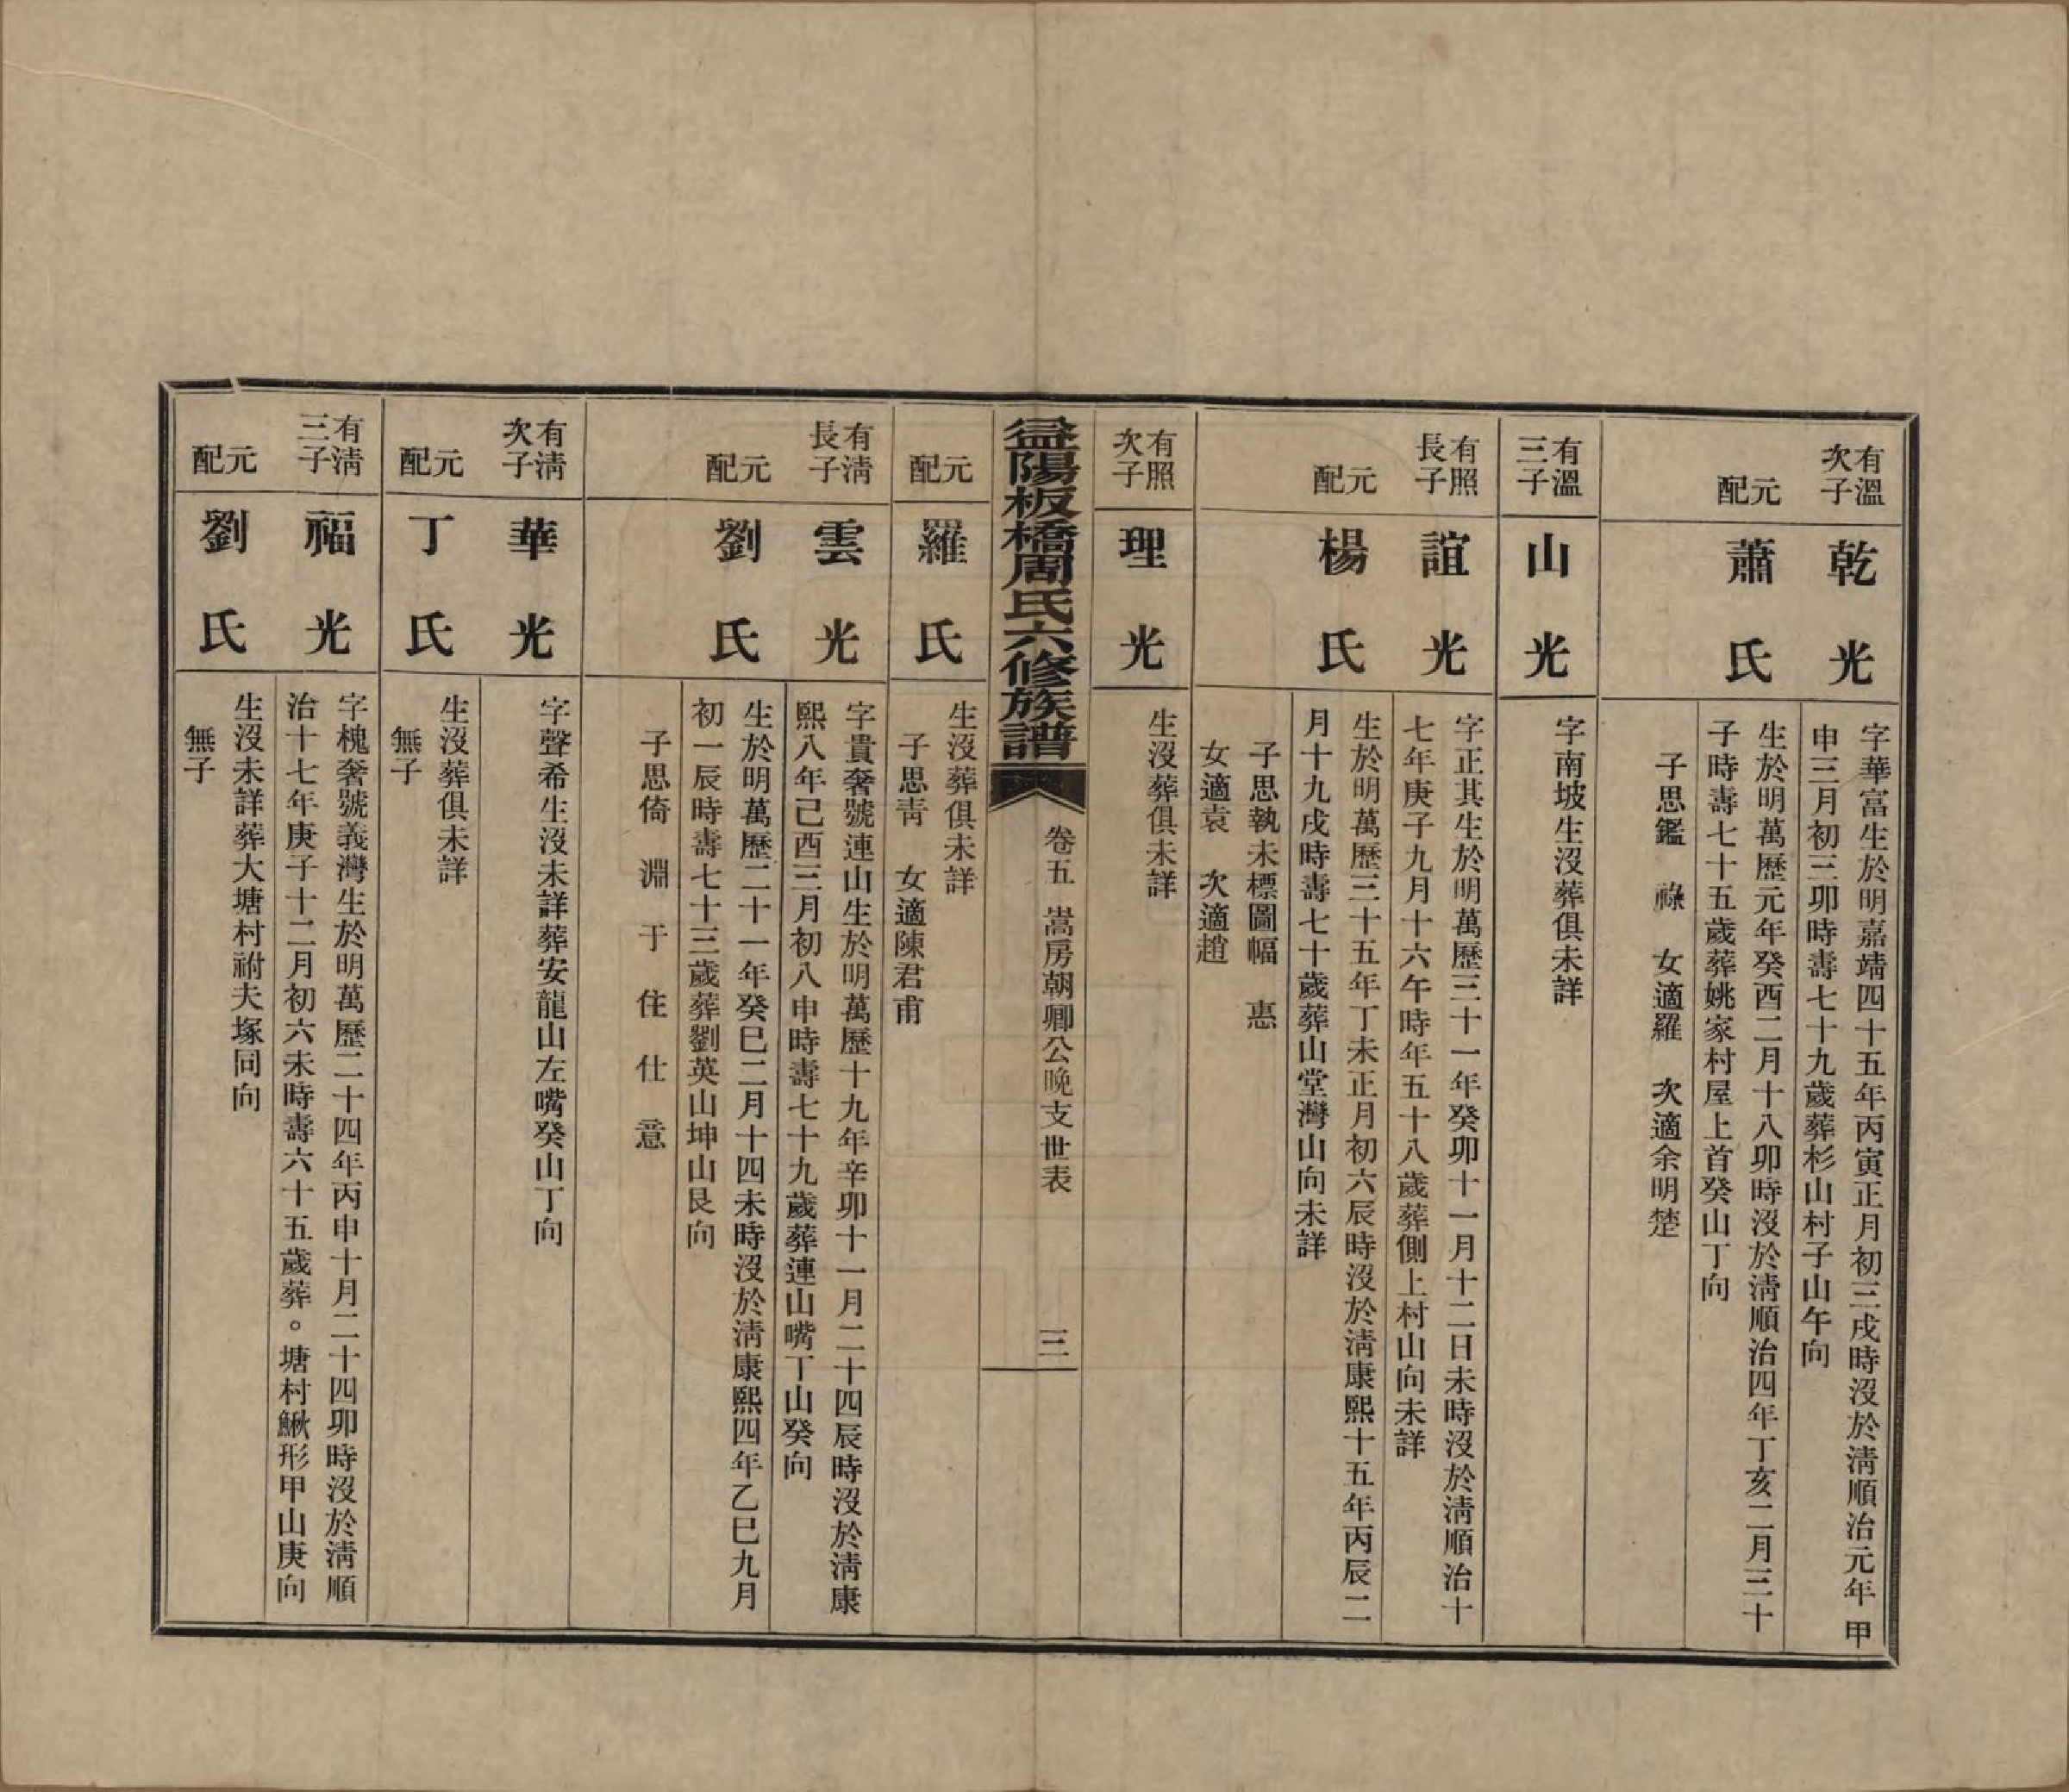 有溫次子
乾光
字華富生於明嘉靖四十五年丙寅正月初三戌時沒於淸順治元年甲
申三月初三卯時壽七十九歲葬杉山村子山午向
元配
蕭氏
生於明萬歷元年癸酉二月十八卯時沒於淸順治四年丁亥二月三十
子時壽七十五歲葬姚家村屋上首癸山丁向
子思鑑　祿　女適羅　次適余明楚
有溫三子
山光
字南坡生沒葬俱未詳
有照長子
誼光
字正其生於明萬歷三十一年癸卯十一月十二日未時沒於淸順治十
七年庚子九月十六午時年五十八歲葬側上村山向未詳
元配
楊氏
生於明萬歷三十五年丁未正月初六辰時沒於淸康熙十五年丙辰二
月十九戌時壽七十歲葬山堂灣山向未詳
子思執未標圖幅　惪
女適袁　次適趙
有照次子
理光
生沒葬俱未詳
益陽板橋周氏六修族譜
卷五　嵩房朝卿公晚支世表
三
元配
羅氏
生沒葬俱未詳
子思靑　女適陳君甫
有淸長子
雲光
字貴奢號連山生於明萬歷十九年辛卯十一月二十四辰時沒於淸康
熙八年己酉三月初八申時壽七十九歲葬連山嘴丁山癸向
元配
劉氏
生於明萬歷二十一年癸巳二月十四未時沒於淸康熙四年乙巳九月
初一辰時壽七十三歲葬劉英山坤山艮向
子思倚　淵　于　住　仕　意
有淸次子
華光
字聲希生沒未詳葬安龍山左嘴癸山丁向
元配
丁氏
生沒葬俱未詳
無子
有淸三子
福光
字槐奢號義灣生於明萬歷二十四年丙申十月二十四卯時沒於淸順
治十七年庚子十二月初六未時壽六十五歲葬。塘村鰍形甲山庚向
元配
劉氏
生沒未詳葬大塘村祔夫塚同向
無子